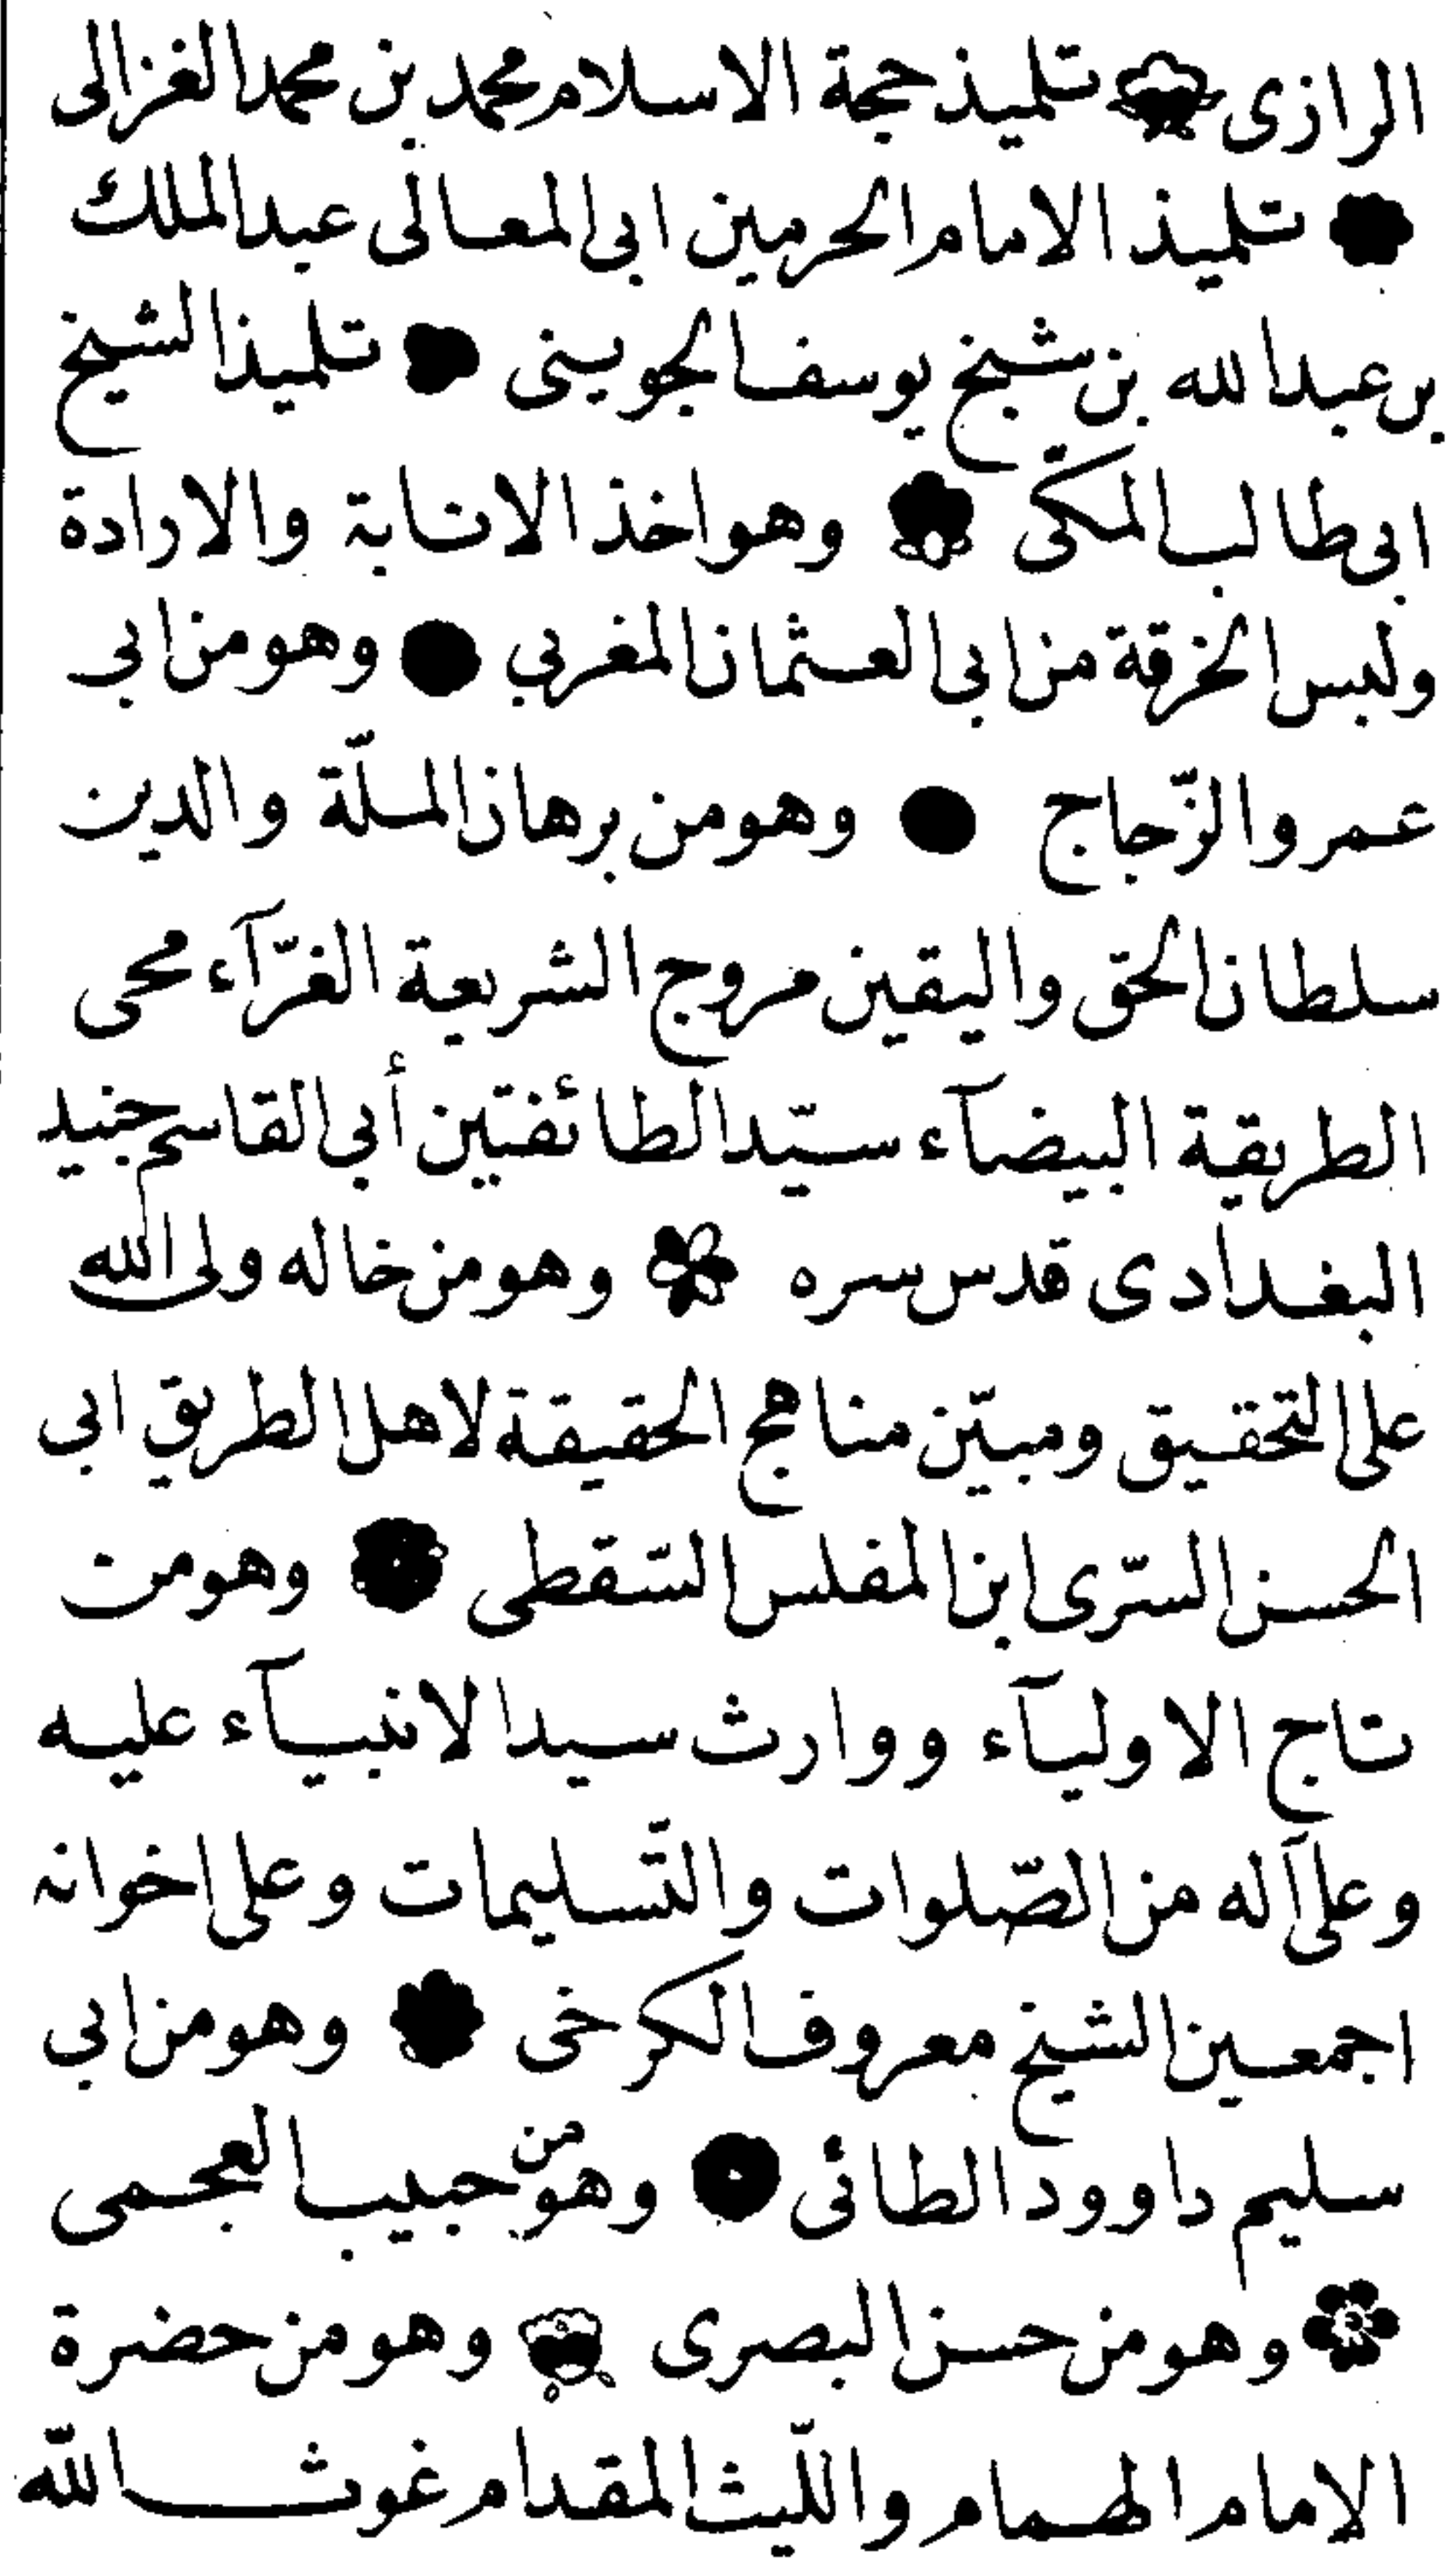 الرازى تلميذ حجة الاسلام محمد بن محمد الغزالى
تلميذ الامام الحرمين ابى المعالى عبد الملك
بن عبد الله بن شيخ يوسف الجوينى تلميذ الشيخ
ابى طالب المكّى وهو اخذ الانابة والارادة
ولبس الخرقة من ابي العثمان المغربي وهو من ابي
عمرو الزّجاج وهو من برهان الملّة والدين
سلطان الحق واليقين مروج الشريعة الغرّآء محى
الطريقة البيضآء سيّد الطائفتين أبي القاسم جنيد
البغدادى قدس سره وهو من خاله ولى الله
على التحقيق ومبيّن مناهج الحقيقة لاهل الطريق ابى
الحسن السّرى ابن المفلس السّقطى وهو من
تاج الاوليآء ووارث سيد الانبيآء عليه
وعلى آله من الصّلوات والتّسليمات وعلى اخوانه
اجمعين الشيخ معروف الكرخى وهو من ابي
سليم داوود الطائى وهو من حبيب العجمى
وهو من حسن البصرى وهو من حضرة
الامام الهمام واللّيث المقدام غوث اللّه